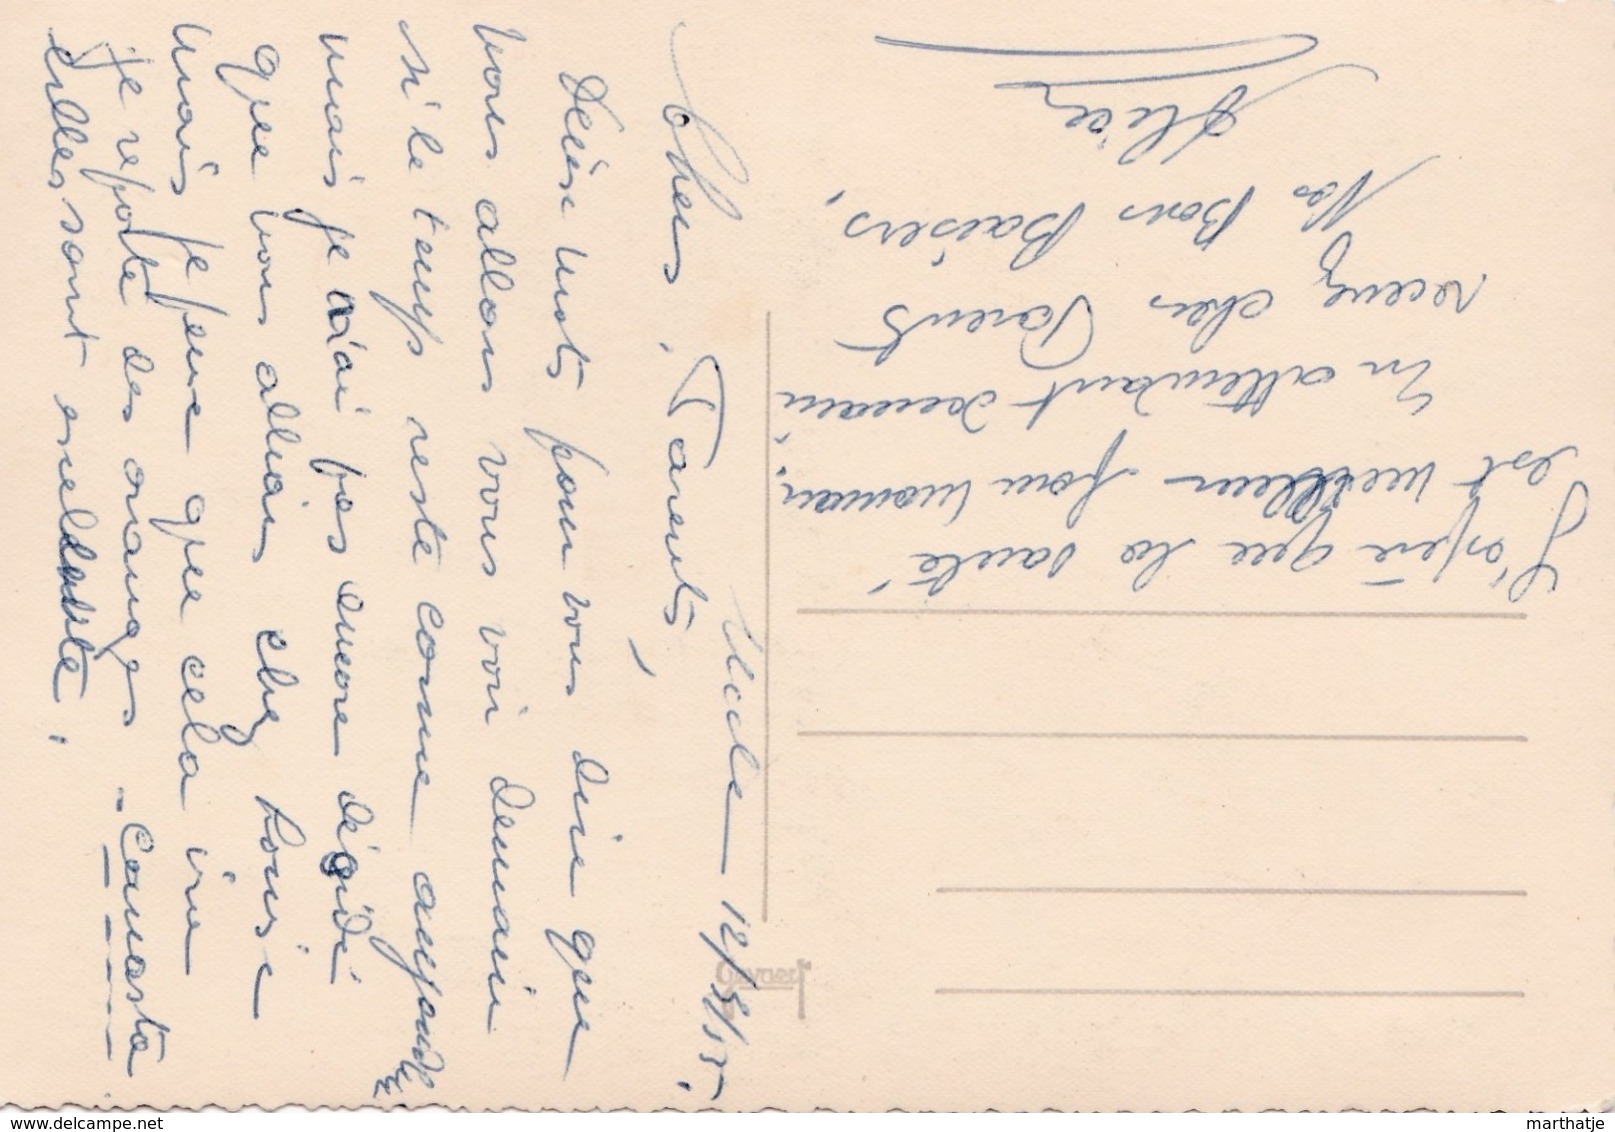 Uccle 12/5/55.
Chers Parents,
Deux mots pour vous dire que
nous allons vous voir demain
si le temps reste comme aujourd'hui
mais je n'ai pas encore décidé
que vous alliez chez Louise
mais je pense que cela ira
je reporte des oranges - Comesta
elles sont
J'espère que la santé
est meilleur pour maman,
En attendant demain,
recevez chers Parents
Nos Bons Baisers,
Alice
Gevaert
www.delcampe.net
marthatje